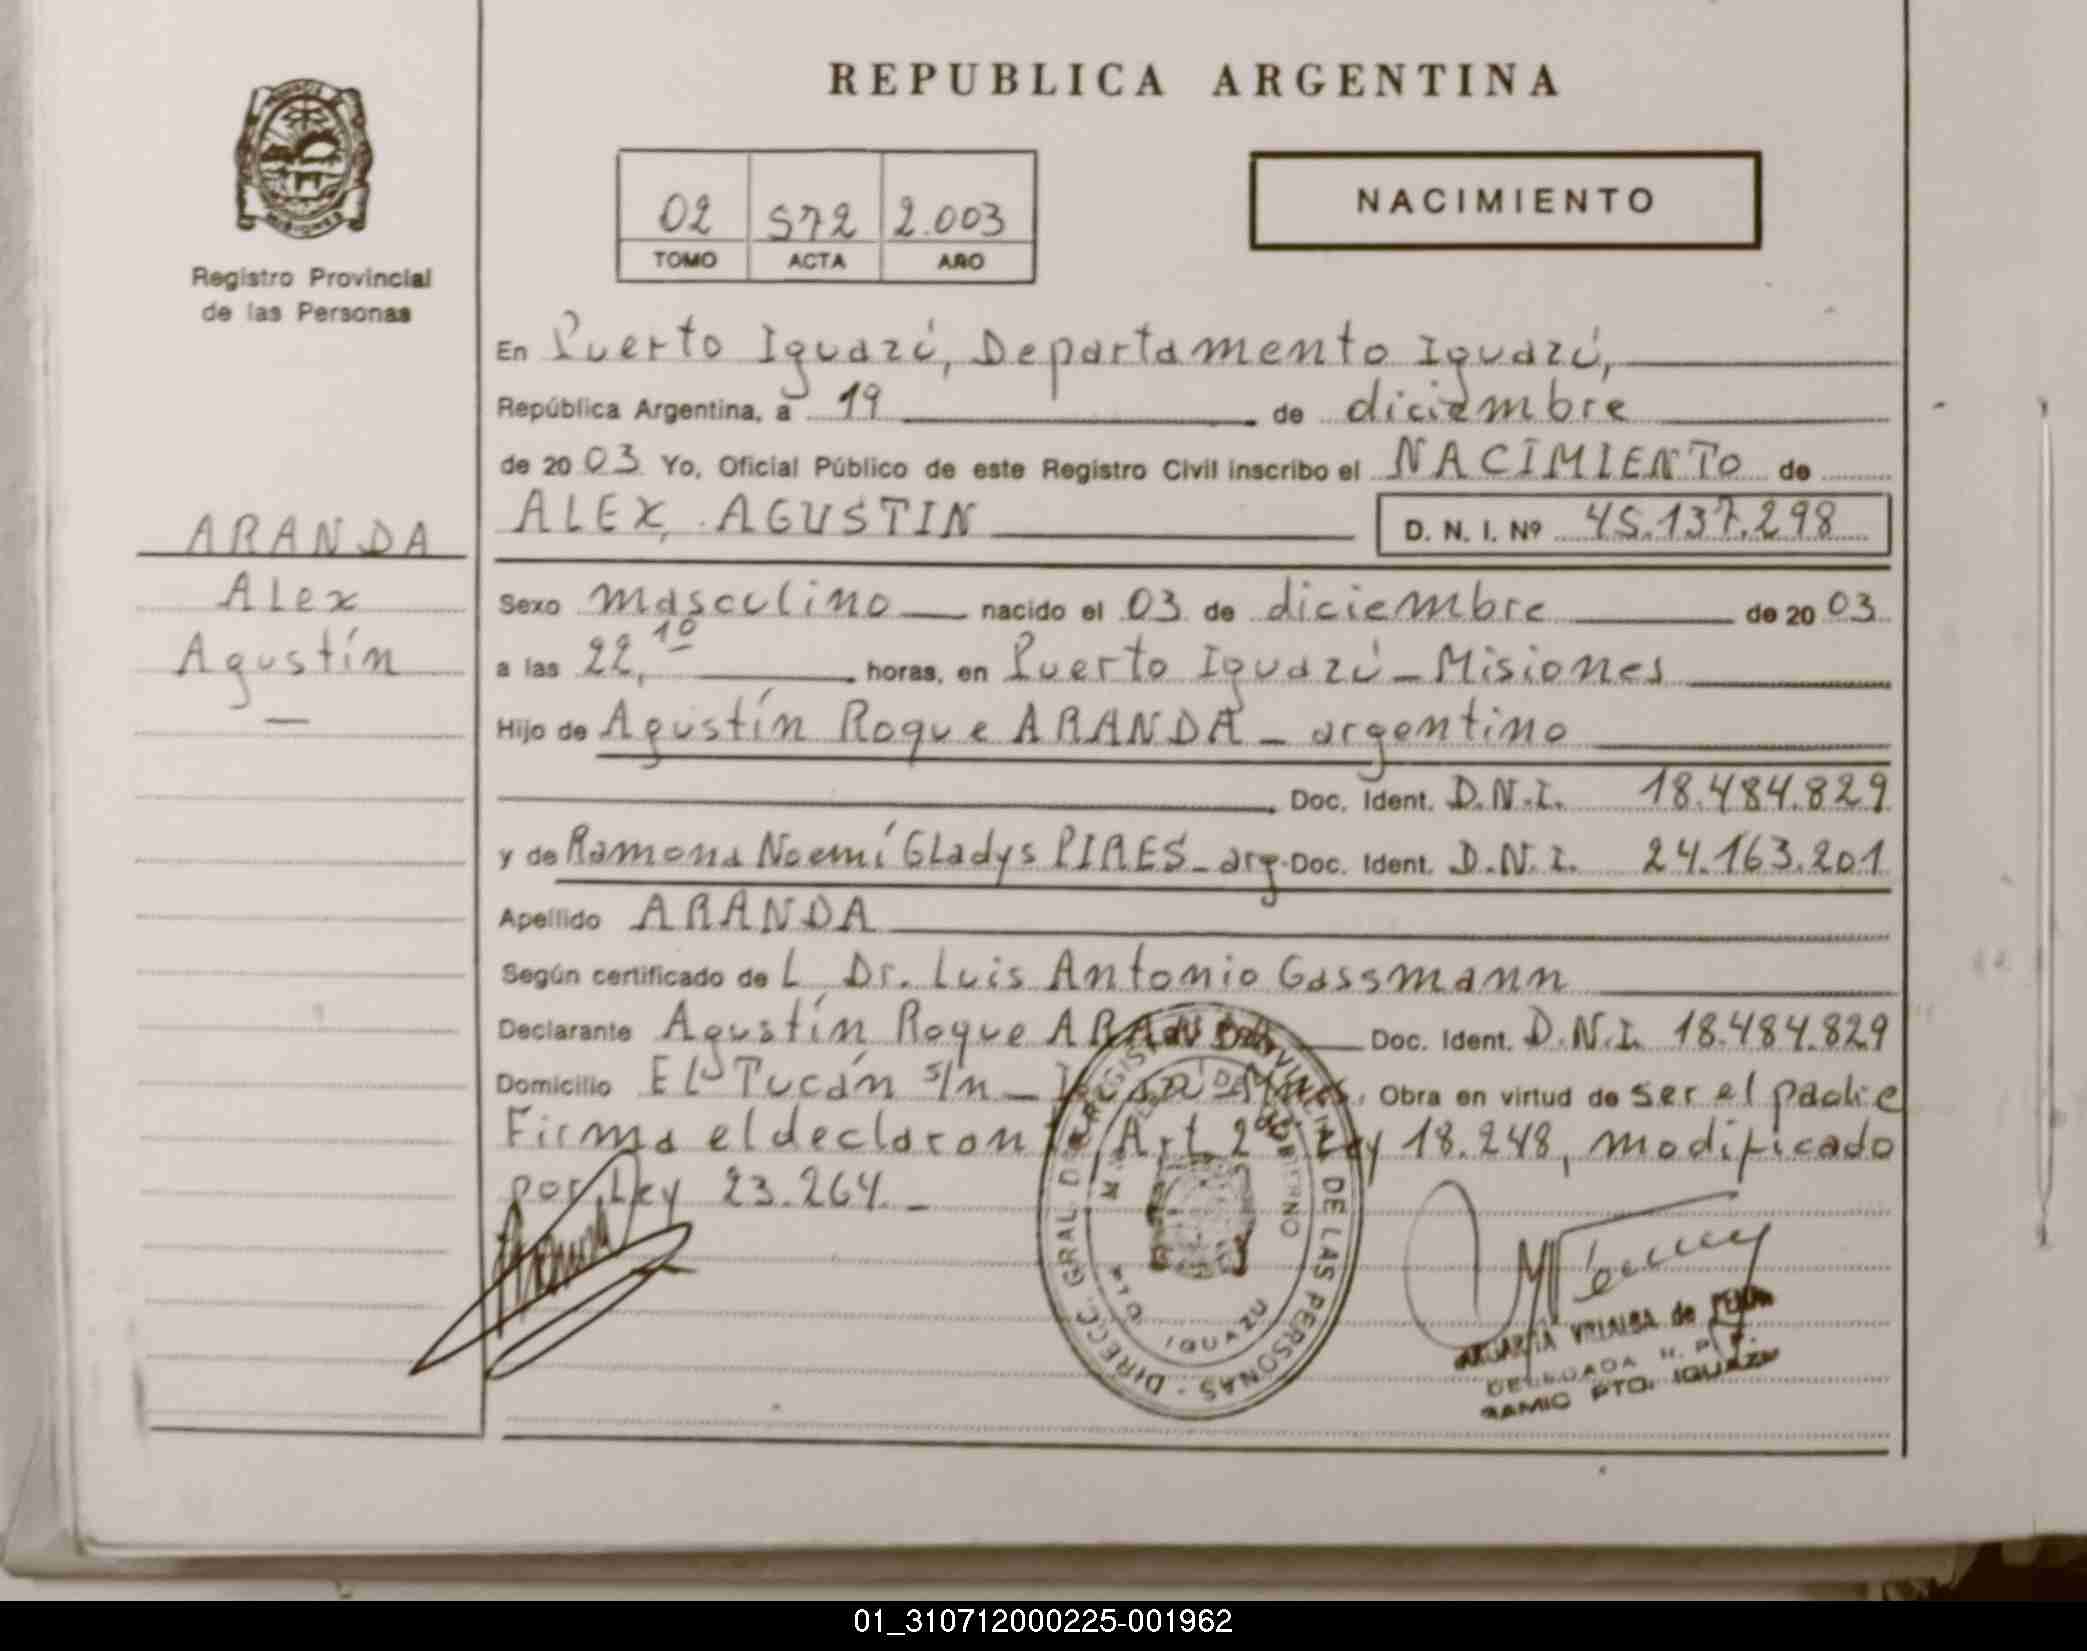 REPUBLICA ARGENTINA
02 572 2.003
TOMO ACTA AÑO
NACIMIENTO
MISIONES
Registro Provincial
de las Personas
ARANDA
Alex
Agustín
En Puerto Iguazú, Departamento Iguazú,
República Argentina, a 19 de diciembre
de 2003 Yo, Oficial Público de este Registro Civil inscribo el NACIMIENTO de
ALEX, AGUSTIN D. N. I. Nº 45.137.298
Sexo masculino nacido el 03 de diciembre de 2003
a las 22,10 horas, en Puerto Iguazú - Misiones
Hijo de Agustín Roque ARANDA - argentino
Doc. Ident. D.N.I. 18.484.829
y de Ramona Noemí Gladys PIRES - arg. Doc. Ident. D.N.I. 24.163.201
Apellido ARANDA
Según certificado de L Dr. Luis Antonio Gassmann
Declarante Agustín Roque ARANDA Doc. Ident. D.N.I. 18.484.829
Domicilio El Tucán s/n - Obra en virtud de ser el padre
Firma el declaran Art 2º Ley 18.248, modificado
por Ley 23.264. -
DIRECC. GRAL DE REGISTRO PROVINCIAL DE LAS PERSONAS
DE GOBIERNO
PTO. IGUAZU
VILLALBA de
DELEGADA R. P. P.
RAMIC PTO. IGUAZU
01_310712000225-001962